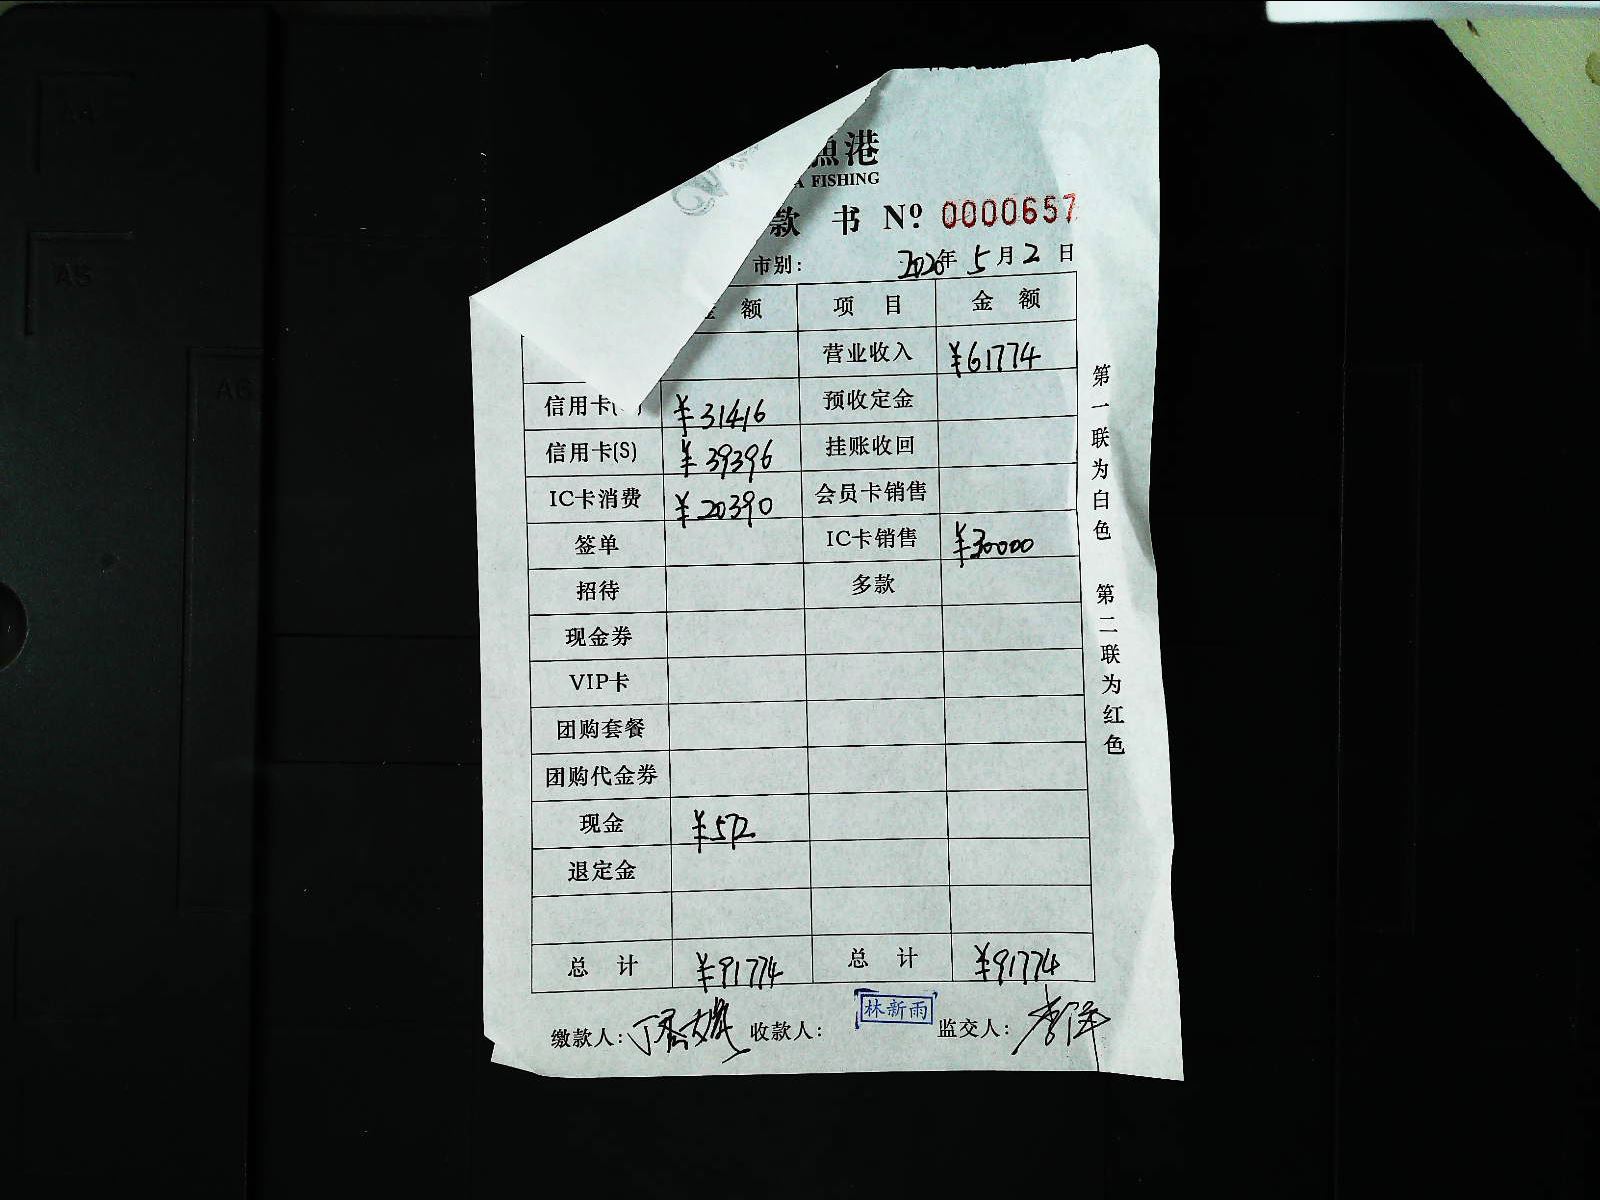 渔港
A FISHING
款 书 Nº 0000657
市别： 2020年 5月 2日
金 额 项 目 金 额
营业收入 ¥61774
信用卡 ¥31416 预收定金
信用卡(S) ¥39396 挂账收回
IC卡消费 ¥20390 会员卡销售
签单 IC卡销售 ¥30000
招待 多款
现金券
VIP卡
团购套餐
团购代金券
现金 ¥572
退定金
总 计 ¥91774 总 计 ¥91774
缴款人： 收款人： 林新雨 监交人：
第一联为白色 第二联为红色
A5
A6